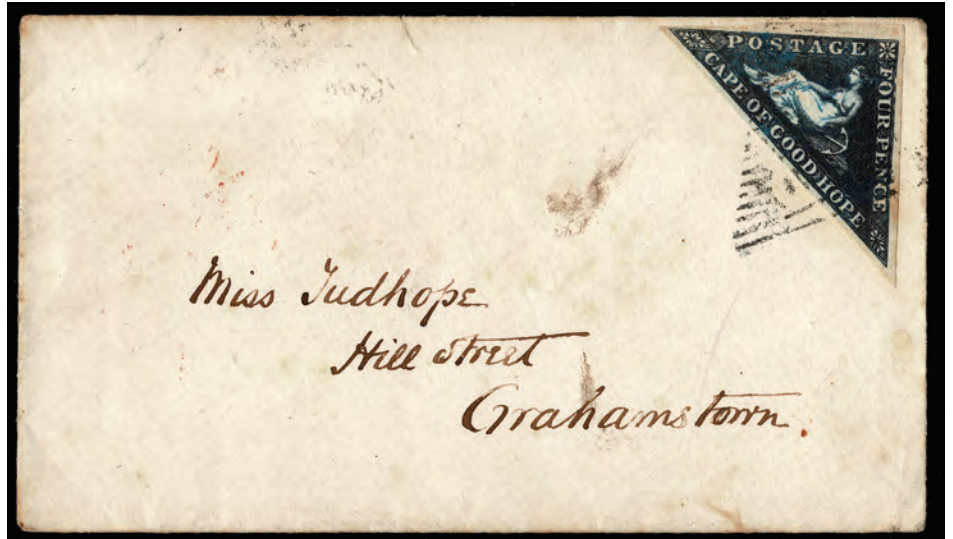 POSTAGE
FOUR PENCE
CAPE OF GOOD HOPE
Miss Tudhope
Hill Street
Grahamstown.